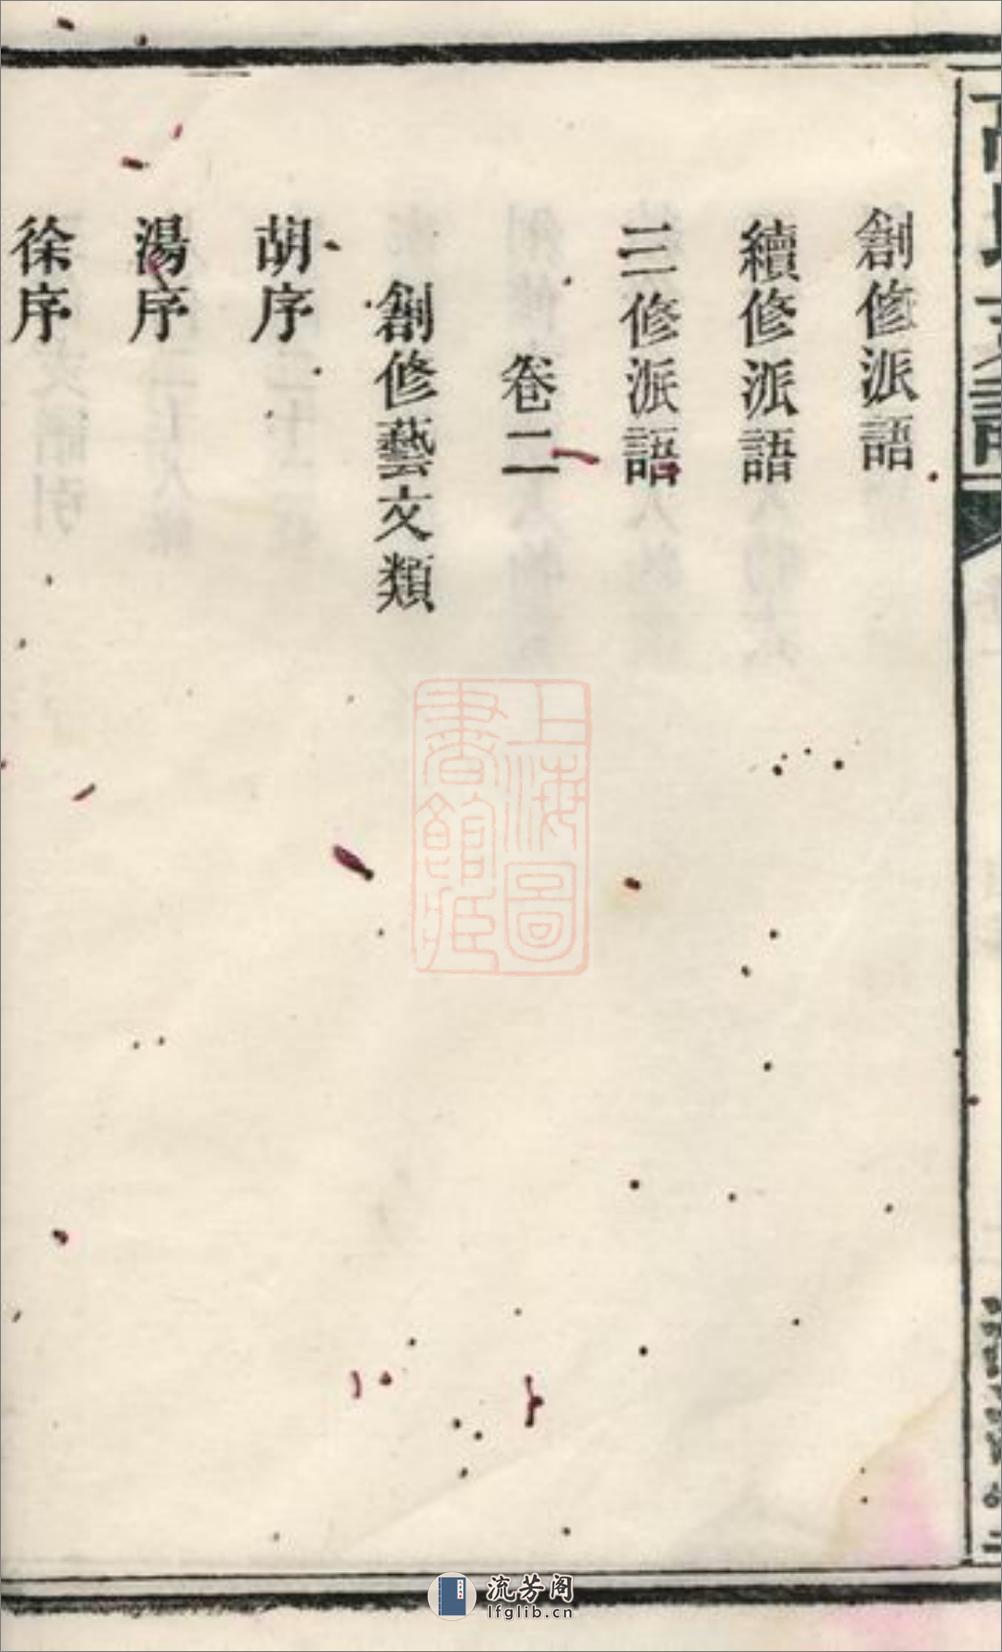 創修派語
續修派語
三修派語
卷二
創修藝文類
胡序
湯序
徐序
上海圖
書館藏
流芳阁
lfglib.cn